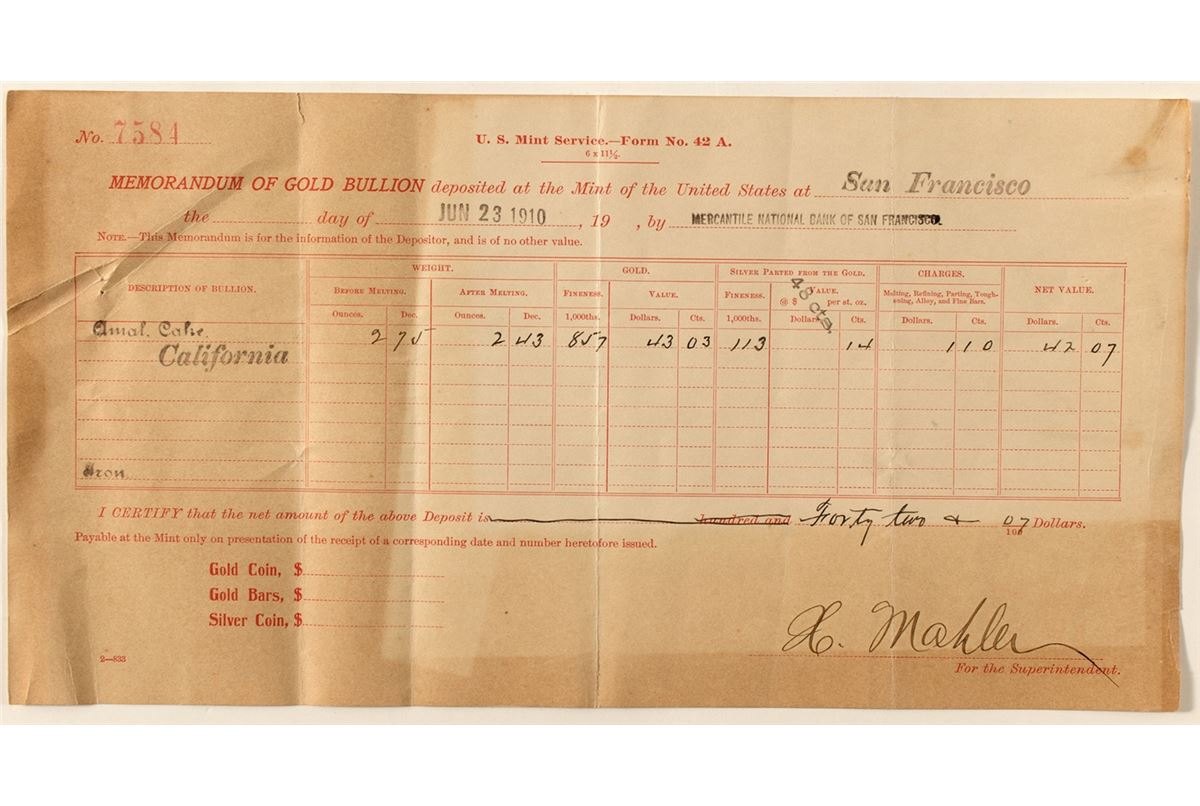 No. 7584
U. S. Mint Service.—Form No. 42 A.
6 x 11½.
MEMORANDUM OF GOLD BULLION deposited at the Mint of the United States at San Francisco
the day of JUN 23 1910, 19 , by MERCANTILE NATIONAL BANK OF SAN FRANCISCO.
NOTE.—This Memorandum is for the information of the Depositor, and is of no other value.
DESCRIPTION OF BULLION. WEIGHT. GOLD. SILVER PARTED FROM THE GOLD. CHARGES. NET VALUE.
BEFORE MELTING. AFTER MELTING. FINENESS. VALUE. FINENESS. VALUE. Melting, Refining, Parting, Tough-
@ $ 48 cts. per st. oz. ening, Alloy, and Fine Bars.
Ounces. Dec. Ounces. Dec. 1,000ths. Dollars. Cts. 1,000ths. Dollars. Cts. Dollars. Cts. Dollars. Cts.
Amal. Cake. 2 75 2 43 857 43 03 113 14 1 10 42 07
California
Iron
I CERTIFY that the net amount of the above Deposit is hundred and Forty two & 07/100 Dollars.
Payable at the Mint only on presentation of the receipt of a corresponding date and number heretofore issued.
Gold Coin, $
Gold Bars, $
Silver Coin, $
X. Mahler
2—833
For the Superintendent.